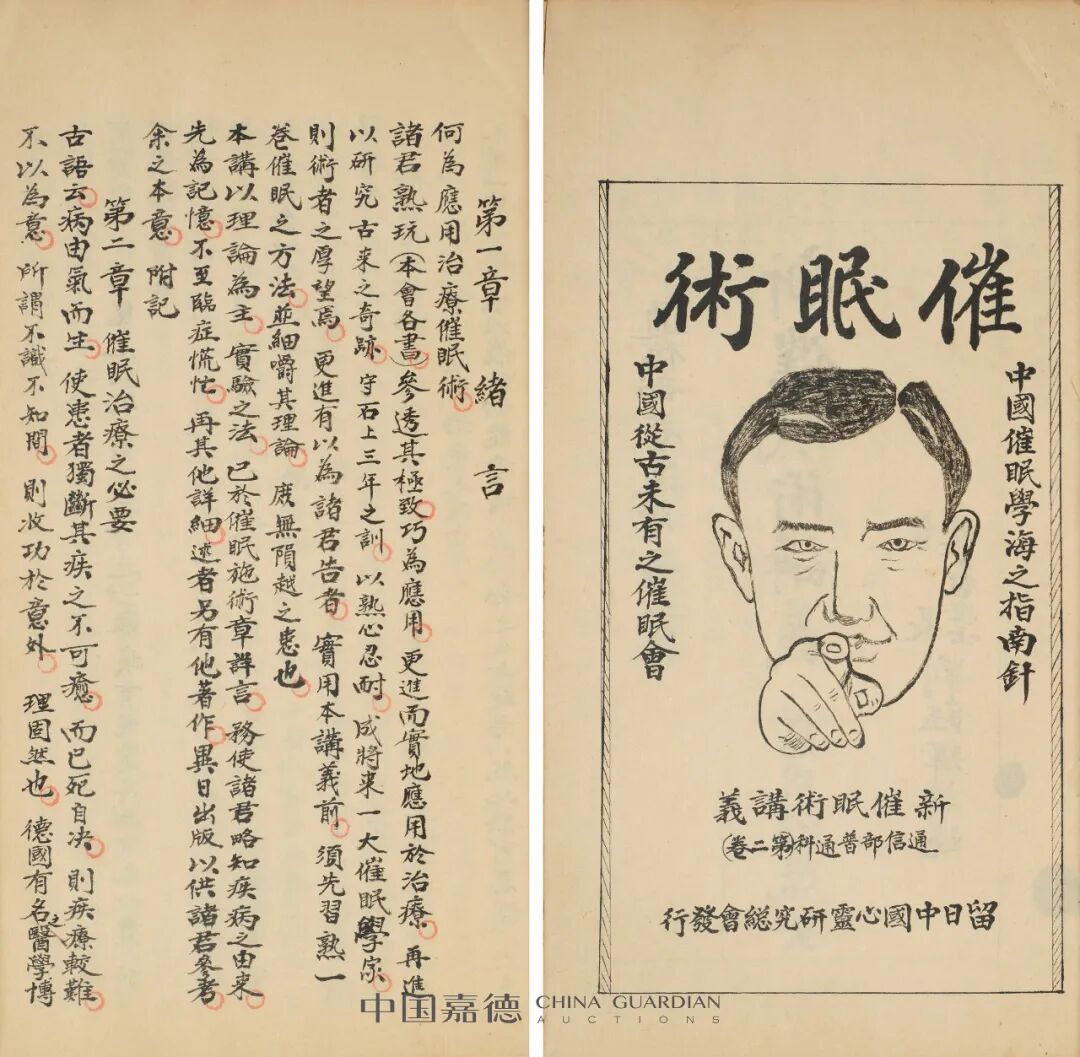 催眠術
中國催眠學海之指南針
中國從古未有之催眠會
新催眠術講義
通信部普通科(第二卷)
留日中國心靈研究総會發行
第一章 緒言
何為應用治療催眠術。
諸君熟玩(本會各書)參透其極致巧為應用。更進而實地應用於治療。再進
以研究古来之奇跡。守石上三年之訓。以熟心忍耐。成將来一大催眠學家。
則術者之厚望焉。更進有以為諸君告者。實用本講義前。須先習熟一
卷催眠之方法。並細嚼其理論。庶無隕越之患也。
本講以理論為主。實驗之法。已於催眠施術章詳言。務使諸君略知疾病之由来。
先為記憶。不至臨症慌忙。再其他詳細述者另有他著作。異日出版以供諸君參考。
余之本意。附記
第二章 催眠治療之必要
古語云。病由氣而生。使患者獨斷其疾之不可癒。而已死自决。則疾療較難。
不以為意。所謂不識不知間。則收功於意外。理固然也。德國有名之醫學博
中国嘉德 CHINA GUARDIAN
AUCTIONS